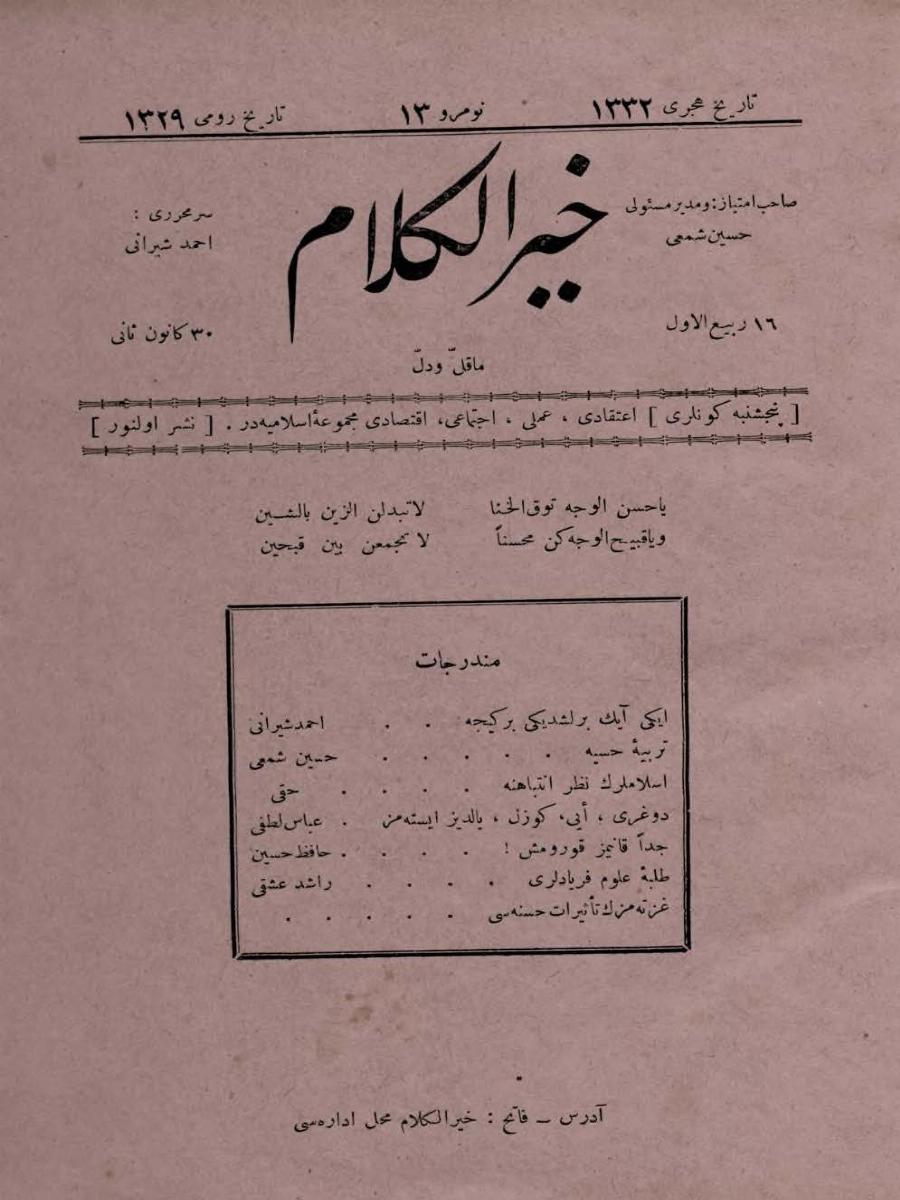 تاریخ هجری ۱۳۳۲ نومرو ۱۳ تاریخ رومی ۱۳۲۹
خیرالکلام
صاحب امتیاز: ومدیر مسئولی
حسین شمعی
سرمحرری :
احمد شیرانی
۱٦ ربیع الاول
۳۰ کانون ثانی
ماقلّ ودلّ
[ پنجشنبه کونلری ] اعتقادی ، عملی ، اجتماعی، اقتصادی مجموعهٔ اسلامیه‌در . [ نشر اولنور ]
یاحسن الوجه توق الخنا لاتبدلن الزین بالشین
ویاقبیح الوجه کن محسناً لا تجمعن بین قبحین
مندرجات
ایکی آیك برلشدیکی برکیجه . . احمد شیرانی
تربیهٔ حسیه . . . . . حسین شمعی
اسلاملرك نظر انتباهنه . . . . حقی
دوغری ، أیی، کوزل ، یالدیز ایسته‌مز . عباس لطفی
جداً قانیمز قورومش ! . . . . حافظ حسین
طلبهٔ علوم فریادلری . . . . راشد عشقی
غزته‌مزك تأثیرات حسنه‌سی . . . . .
آدرس — فاتح : خیرالکلام محل اداره‌سی